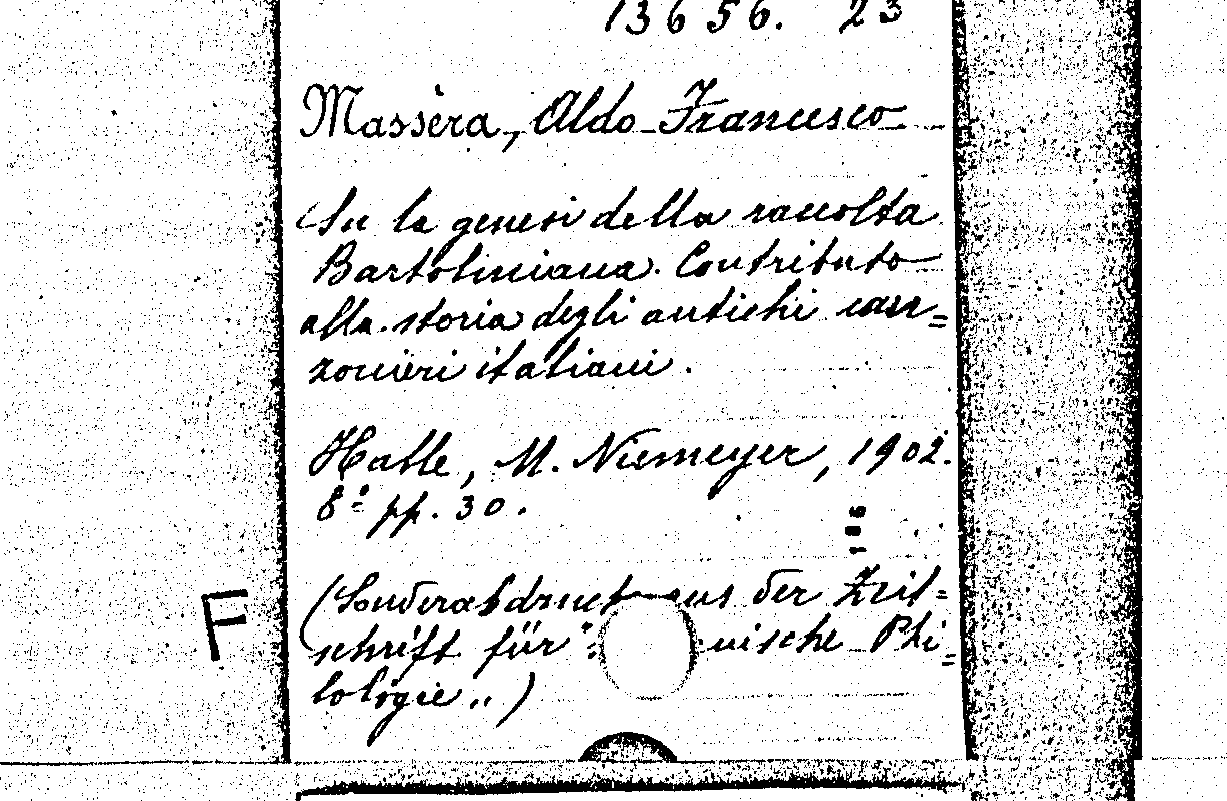 13656. 23
Massèra, Aldo Francesco
Su la genesi della raccolta
Bartoliniana. Contributo
alla storia degli antichi can=
zonieri italiani.
Halle, M. Niemeyer, 1902.
8° pp. 30.
(Sonderabdruck aus der Zeit=
F
schrift für " nische Phi=
lologie„)